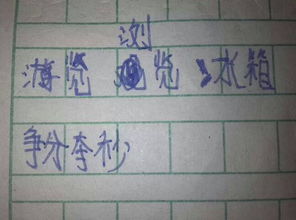 浏
游览 览 水箱
争分夺秒